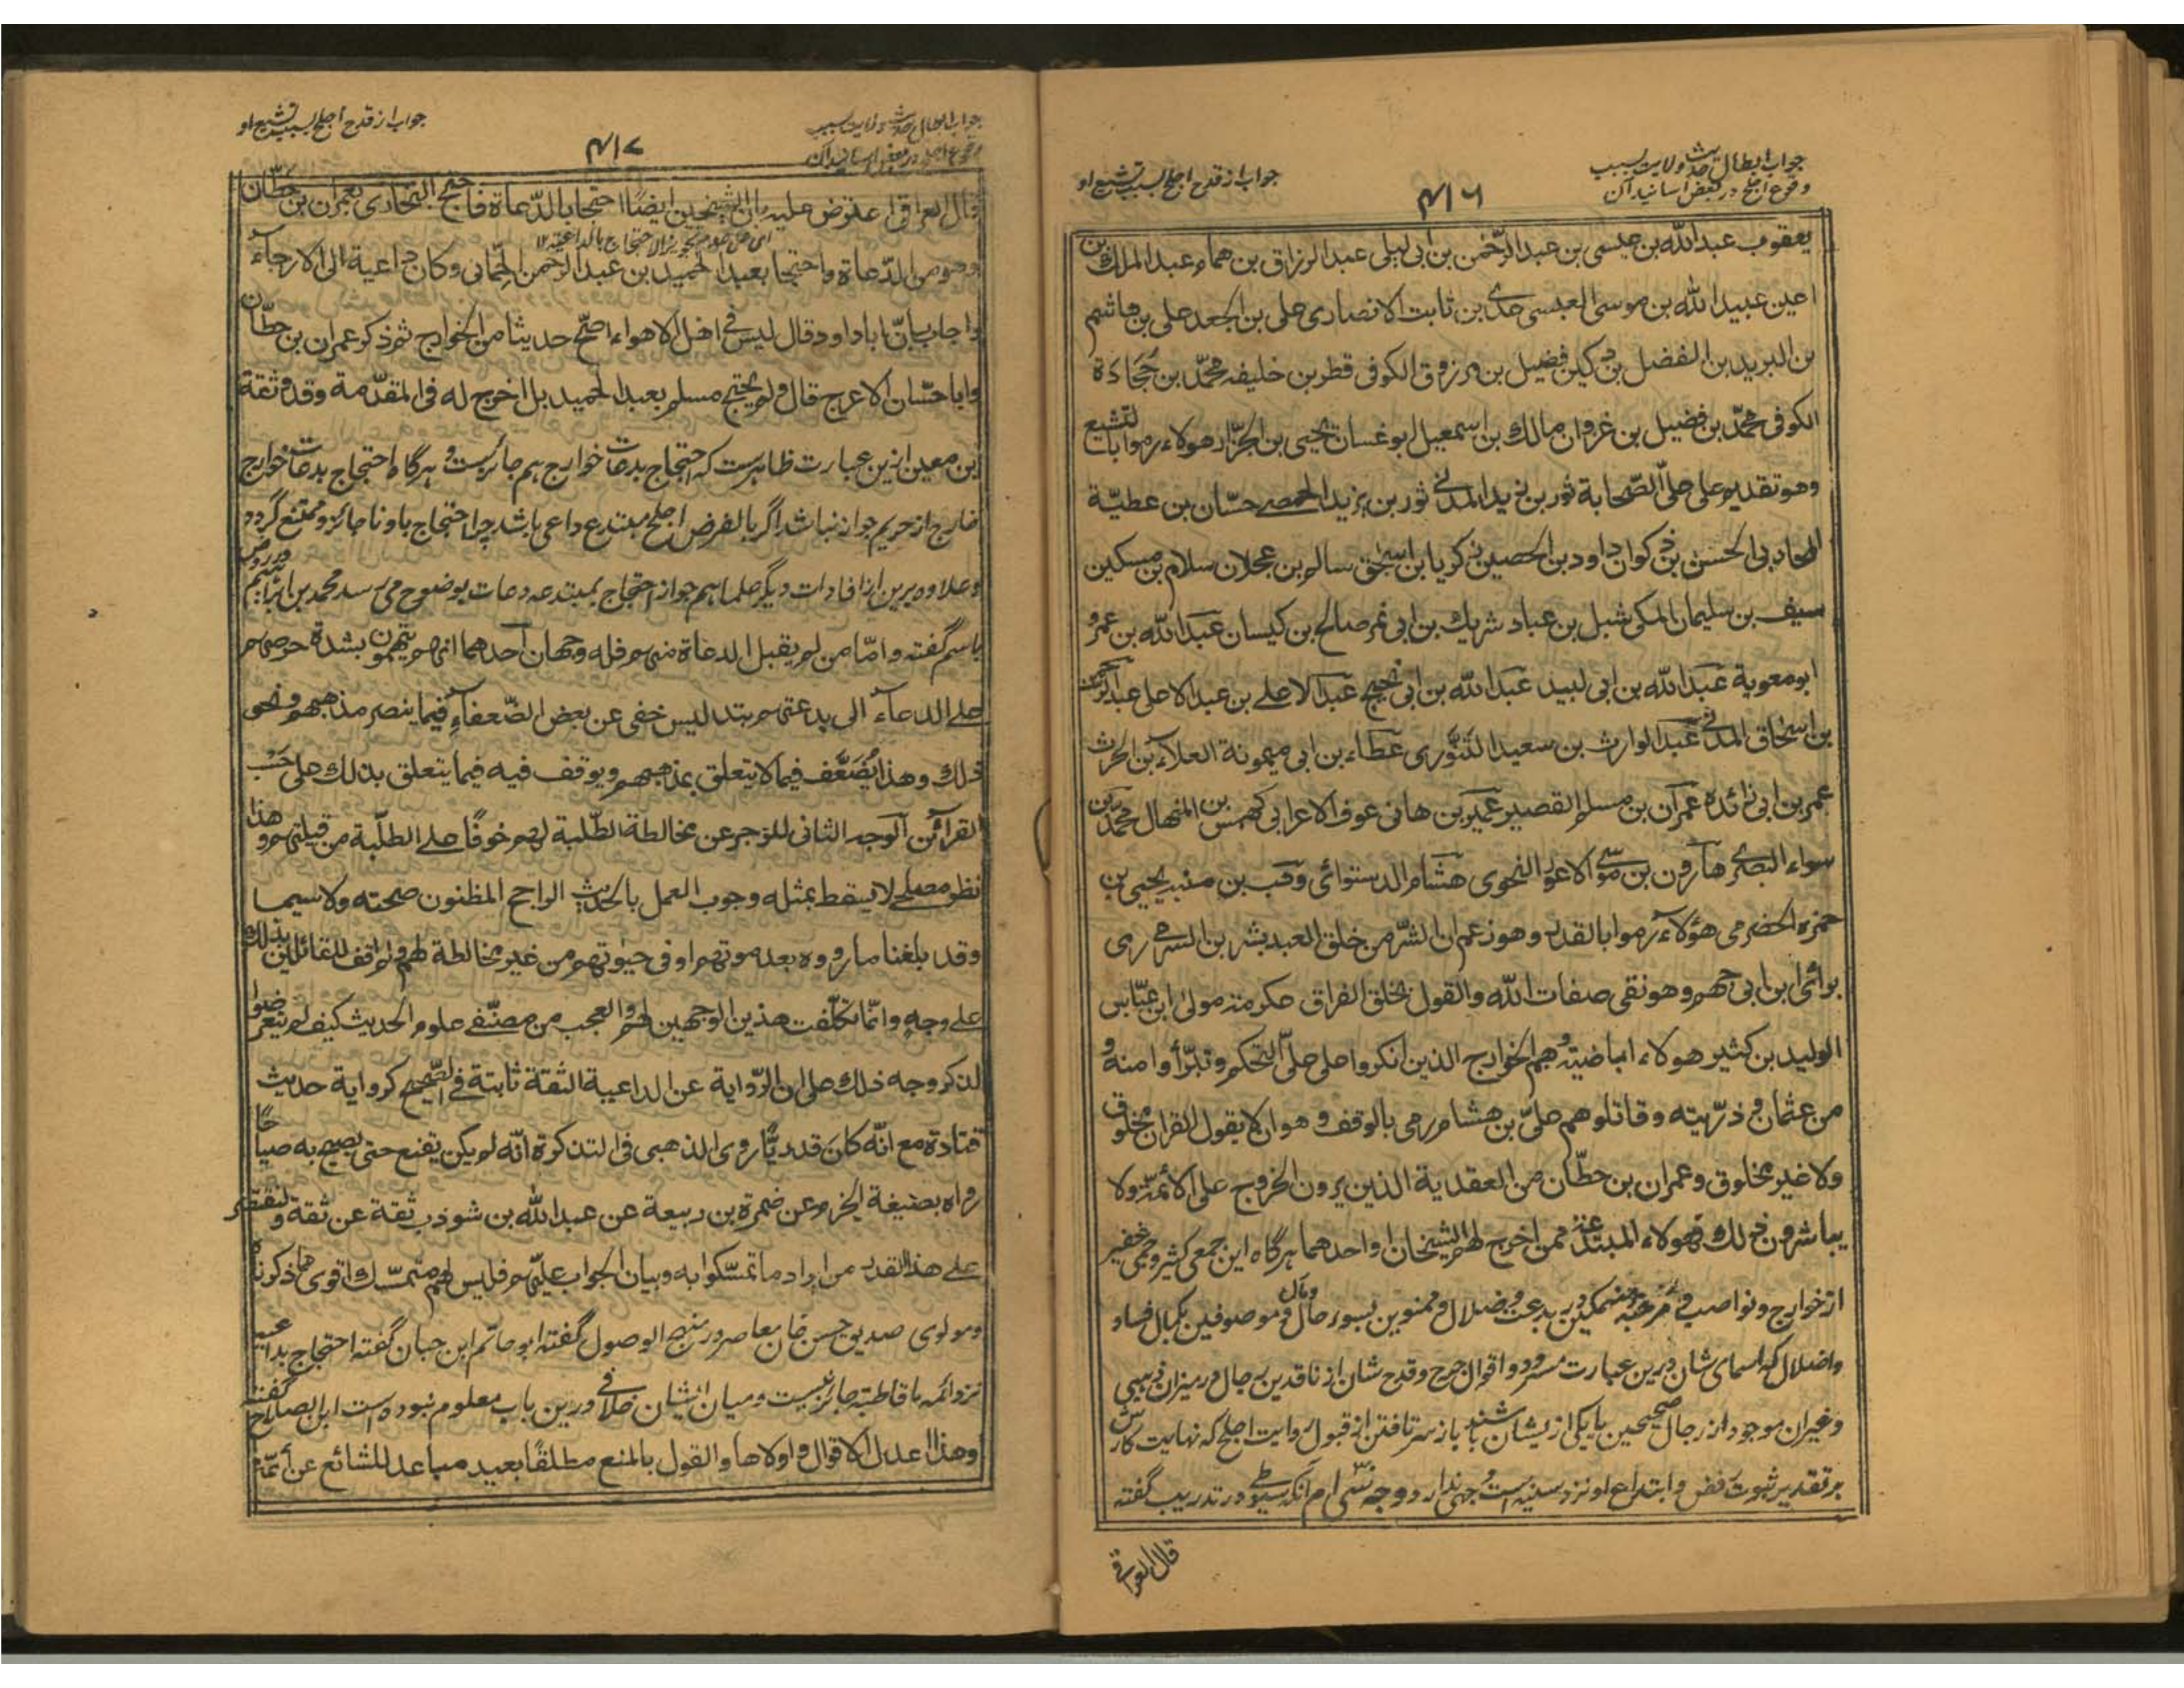 جواب ابطال حدیث ولایت بسبب
وقوع اجلح در بعض اسانید آن
۴۱۶
جواب از قدح اجلح بسبب تشیع او
یعقوب عبدالله بن عیسی بن عبدالرحمن بن ابی لیلی عبدالرزاق بن همام عبدالملك بن
اعین عبیدالله بن موسی العبسی عدی بن ثابت الانصاری علی بن الجعد علی بن هاشم
بن البرید بن الفضل بن دکین فضیل بن مرزوق الکوفی فطر بن خلیفه محمّد بن جحادة
الکوفی محمّد بن فضیل بن غزوان مالك بن اسمعیل ابو غسان یحیی بن الجزّار هولاء رموا بالتشیع
وهو تقدیم علی علیّ الصّحابة ثور بن زید المدنی ثور بن یزید الحمصی حسّان بن عطیّة
المحاربی الحسن بن ذکوان داود بن الحصین زکریا بن اسحٰق سالم بن عجلان سلام بن مسکین
سیف بن سلیمان المکی شبل بن عباد شریك بن ابی نمر صالح بن کیسان عبدالله بن عمرو
ابو معویة عبدالله بن ابی لبید عبدالله بن ابی نجیح عبدالاعلے بن عبدالاعلی عبدالرحمن
بن اسحاق المدنی عبدالوارث بن سعید التنّوری عطاء بن ابی میمونة العلاء بن الحرث
عمر بن ابی زائده عمران بن مسلم القصیر عمیر بن هانی عوف الاعرابی کهمس بن المنهال محمد بن
سواء البصری هارون بن موسی الاعور النحوی هشام الدستوائی وهب بن منبه یحیی بن
حمزه الحضرمی هؤلاء رموا بالقدر وهو زعم ان الشّر من خلق العبد بشر بن السری رمی
برائی ابن ابی جهم وهو نفی صفات الله والقول بخلق القران عکرمة مولی ابن عبّاس
الولید بن کثیر هولاء اباضیّة وهم الخوارج الذین انکروا علی علیّ التحکم وتبرّأوا منه و
من عثمان و ذرّیته وقاتلوهم علیّ بن هشام رمی بالوقف و هو ان لا یقول القران مخلوق
ولا غیر مخلوق وعمران بن حطّان من العقدیة الذین یرون الخروج علی الائمّة ولا
یباشرون ذلك فهولاء المبتدعة ممن اخرج لهم الشیخان او احدهما هرگاه این جمعی کثیر و جمی غفیر
از خوارج و نواصب و مرجئه منهمکین در بدعت و ضلال و ممنوین بسوء حال و مآل و موصوفین بکمال فساد
واضلال که اسمای شان درین عبارت مسرود و اقوال جرح و قدح شان از ناقدین رجال در میزان ذهبی
و غیر ان موجود از رجال صحیحین یا یکی ازیشان باشند باز سر تافتن از قبول روایت اجلح که نهایت کارش
بر تقدیر ثبوت رفض و ابتداع او نزد سنیه است وجهی ندارد وجه سی ام آنکه سیوطی در تدریب گفته
قال العراقی
جواب ابطال حدیث ولایت بسبب
وقوع اجلح در بعض اسانید آن
۴۱۷
جواب از قدح اجلح بسبب تشیع او
قال العراقی اعترض علیه بان الشیخین ایضًا احتجا بالدّعاة فاحتج البخاری بعمران بن حطّان
ای علی عدم تجویز الاحتجاج بالداعیة ۱۲
وهو من الدّعاة واحتجا بعبد الحمید بن عبدالرحمن الحمّانی وکان داعیة الی الارجاء
واجاب بانّ ابا داود قال لیس فی اهل الاهواء اصحّ حدیثا من الخوارج ثم ذکر عمران بن حطّان
وابا حسّان الاعرج قال ولم یحتج مسلم بعبد الحمید بل اخرج له فی المقدّمة وقد وثقة
ابن معین ازین عبارت ظاهرست که احتجاج بدعات خوارج هم جائزست و هرگاه احتجاج بدعات خوارج
خارج از حریم جواز نباشد اگر بالفرض اجلح مبتدع داعی باشد چرا احتجاج باو ناجائز و ممتنع گردد
و علاوه برین از افادات دیگر علما هم جواز احتجاج بمبتدعه دعات بوضوح می رسد محمد بن ابراهیم در روض
باسم گفته وامّا من لم یقبل الدعاة منهم فله وجهان احدهما انهم یتهمون بشدة حرصهم
علے الدعاء الی بدعتهم بتدلیس خفی عن بعض الضّعفاء فیما ینصر مذهبهم ونحو
ذلك وهذا یُضَعَّف فیما لا یتعلق بمذهبهم ویوقف فیه فیما یتعلق بذلك علی حَسب
القرائن الوجه الثانی للزجر عن مخالطة الطّلبة لهم خوفًا علے الطلّبة من قبلتهم وهذا
نظر مصلحے لا یسقط بمثله وجوب العمل بالحدیث الراجح المظنون صحته ولا سیما
وقد بلغنا ما رووه بعد موتهم او فی حیوتهم من غیر مخالطة لهم ولم اقف للقائلین بذلك
علے وجهٍ وانّما تکلّفت هذین الوجهین لهم والعجب من مصنّفے علوم الحدیث کیف لم یتعرضوا
لذکر وجه ذلك علی ان الرّوایة عن الداعیة الثقة ثابتة فی الصّحیح کروایة حدیث
قتادة مع انّه کان قدریّا روی الذهبی فی التذکرة انّه لم یکن یقنع حتی یصیح به صیاحًا
رواه بصیغة الجزم عن ضمرة بن ربیعة عن عبدالله بن شوذب ثقة عن ثقة ولنقتصر
علے هذا القدر من ایراد ما تمسّکوا به وبیان الجواب علیهم فلیس لهم متمسّك اقوی مما ذکرناه
و مولوی صدیق حسن خان معاصر در منهج الوصول گفته ابو حاتم ابن حبان گفته احتجاج بداعیه
نزد ائمه ما قاطبة جائز نیست و میان ایشان خلافی درین باب معلوم نبوده است ابن الصلاح گفته
وهذا اعدل الاقوال و اولاها والقول بالمنع مطلقًا بعید مباعد للشائع عن أئمّة